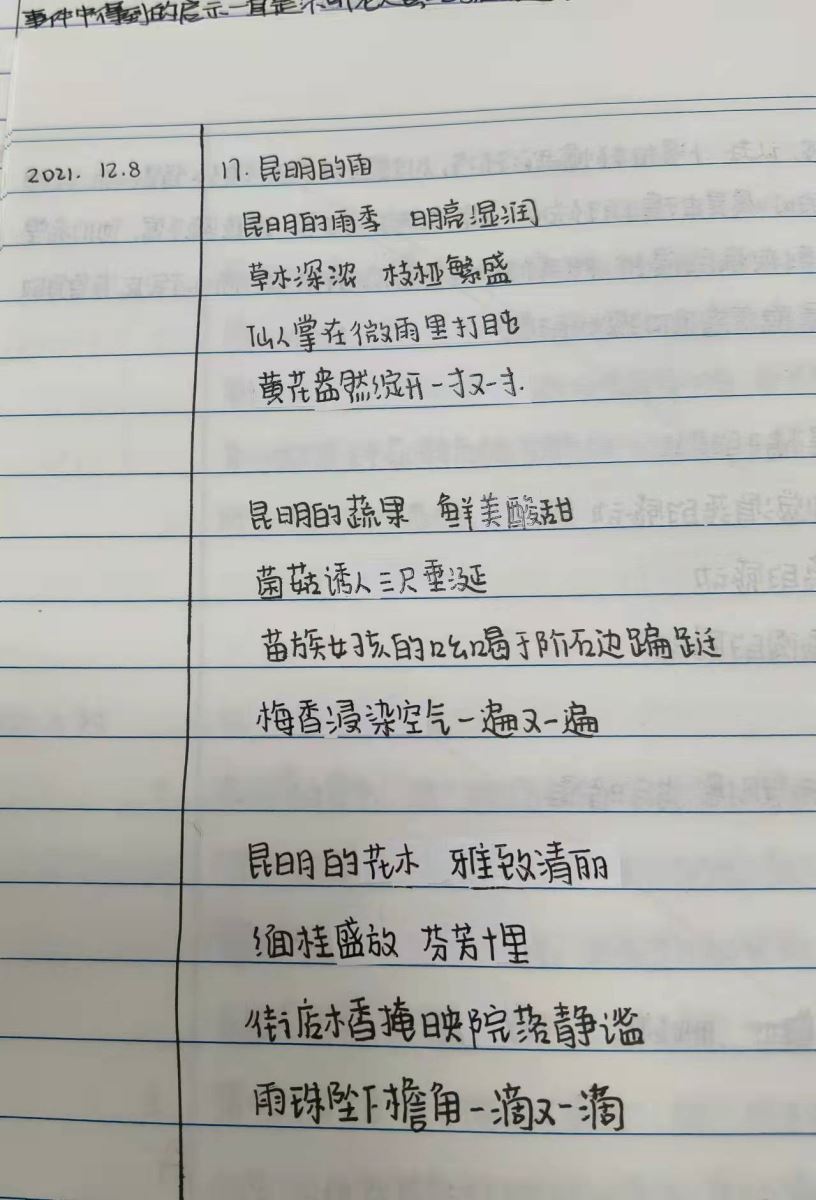 事件中得到的启示一直是
2021. 12.8
17. 昆明的雨
昆明的雨季 明亮湿润
草木深浓 枝桠繁盛
仙人掌在微雨里打盹
黄花盎然绽开一寸又一寸.
昆明的蔬果 鲜美酸甜
菌菇诱人三尺垂涎
苗族女孩的吆喝于阶石边蹁跹
梅香浸染空气一遍又一遍
昆明的花木 雅致清丽
缅桂盛放 芬芳十里
街店木香掩映院落静谧
雨珠坠下檐角一滴又一滴